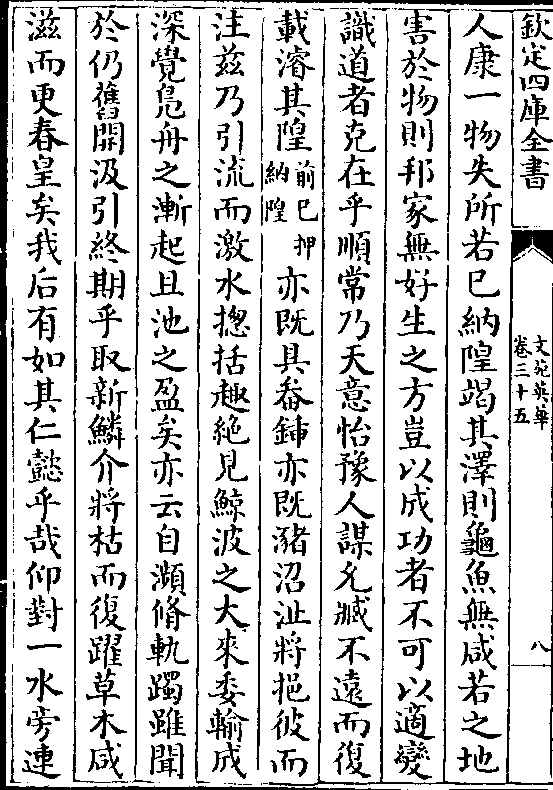 欽定四庫全書
文苑英華
卷三十五
八
人康一物失所若已納隍竭其澤則龜魚無咸若之地
害於物則邦家無好生之方豈以成功者不可以適變
識道者克在乎順常乃天意怡豫人謀允臧不遠而復
載濬其隍前已押納隍亦既具畚鍤亦既瀦沼沚將挹彼而
注茲乃引流而激水揔括趣絶見鯨波之大來委輸成
深覺鳬舟之漸起且池之盈矣亦云自瀕脩軌躅雖聞
於仍舊開汲引終期乎取新鱗介將枯而復躍草木咸
滋而更春皇矣我后有如其仁懿乎哉仰對一水旁連